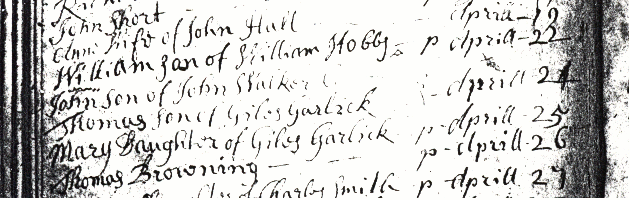 John Short Aprill 19
Anne Wife of John Hall p Aprill 22
William son of William Hobbs
John son of John Walker Aprill 24
Thomas son of Giles Garlick p Aprill 25
Mary Daughter of Giles Garlick p Aprill 26
Thomas Browning p Aprill 27
of Charles Smith